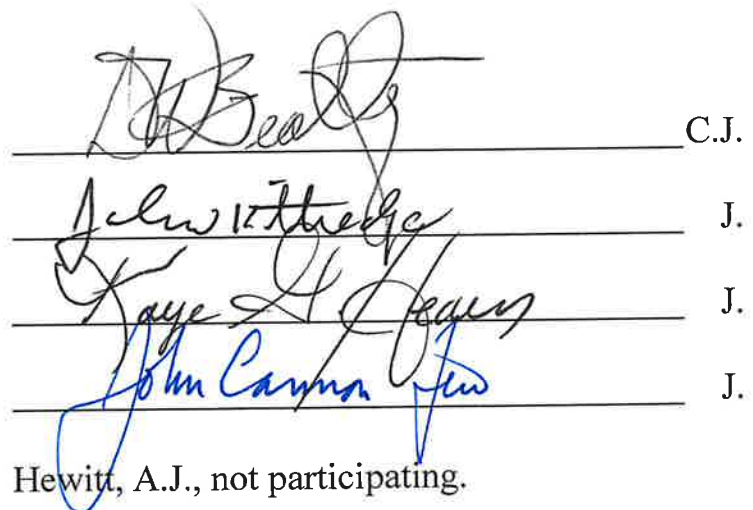 D W Beatty C.J.
John Kittredge J.
Kaye G Hearn J.
John Cannon Few J.
Hewitt, A.J., not participating.